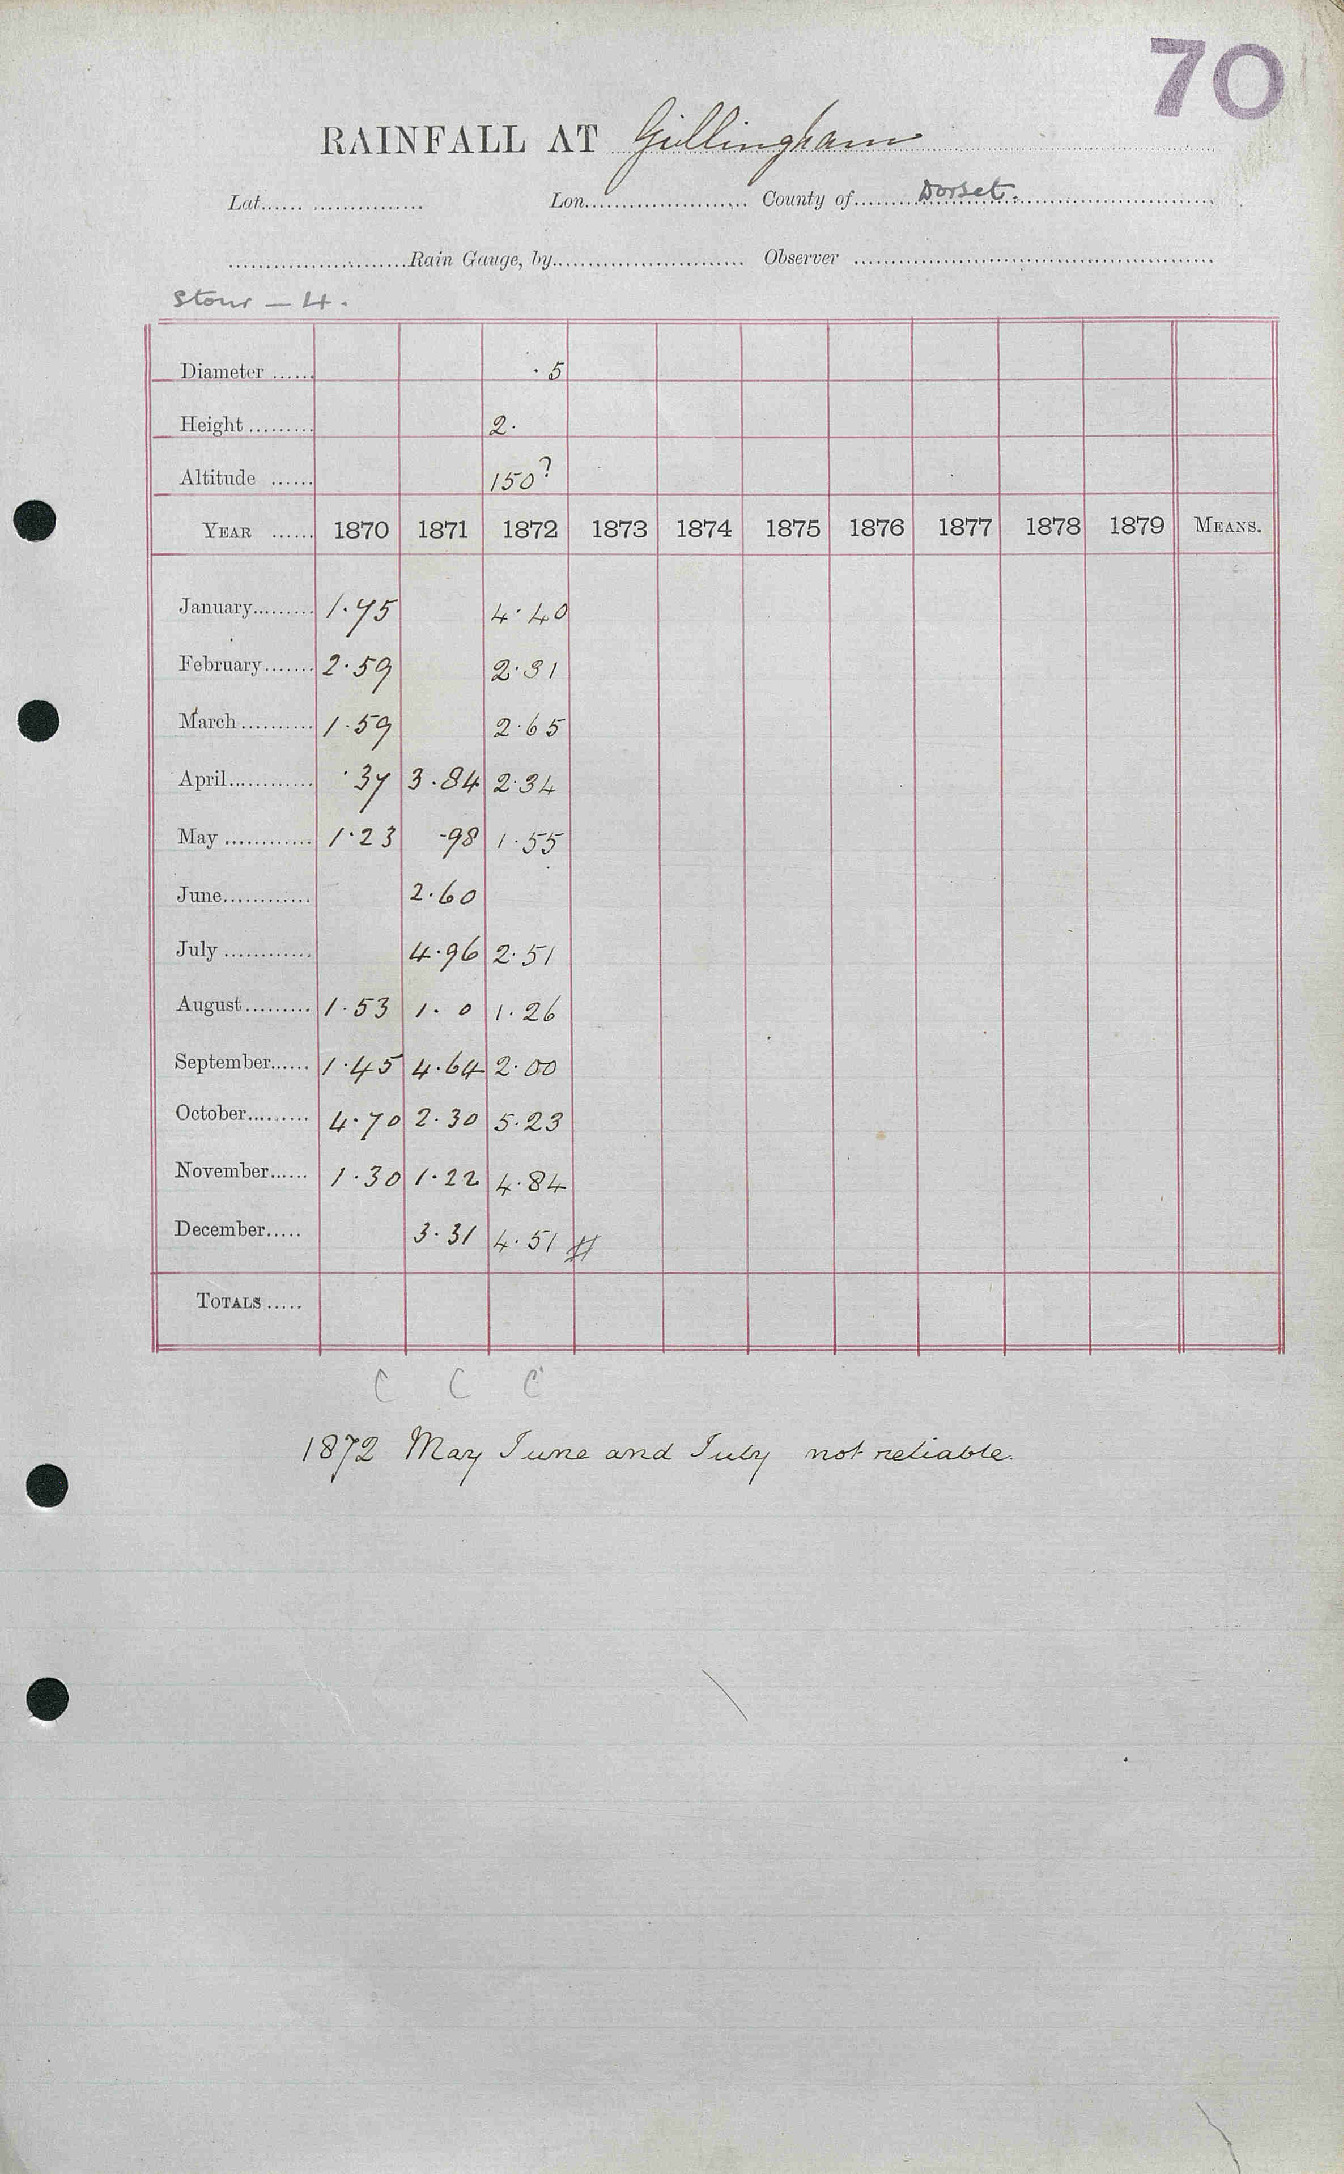 70
RAINFALL AT Gillingham
Lat...... ................ Lon....................... County of.........Dorset.
.........................Rain Gauge, by.......................... Observer ................................................
Stour — 4.
Diameter ...... ·5
Height ......... 2.
Altitude ...... 150?
YEAR ...... 1870 1871 1872 1873 1874 1875 1876 1877 1878 1879 MEANS.
January......... 1·75 4·40
February....... 2·59 2·31
March .......... 1·59 2·65
April............ ·37 3·84 2·34
May ............ 1·23 ·98 1·55
June............ 2·60
July ............ 4·96 2·51
August......... 1·53 1·0 1·26
September...... 1·45 4·64 2·00
October......... 4·70 2·30 5·23
November...... 1·30 1·22 4·84
December..... 3·31 4·51 #
TOTALS .....
C C C
1872 May June and July not reliable.